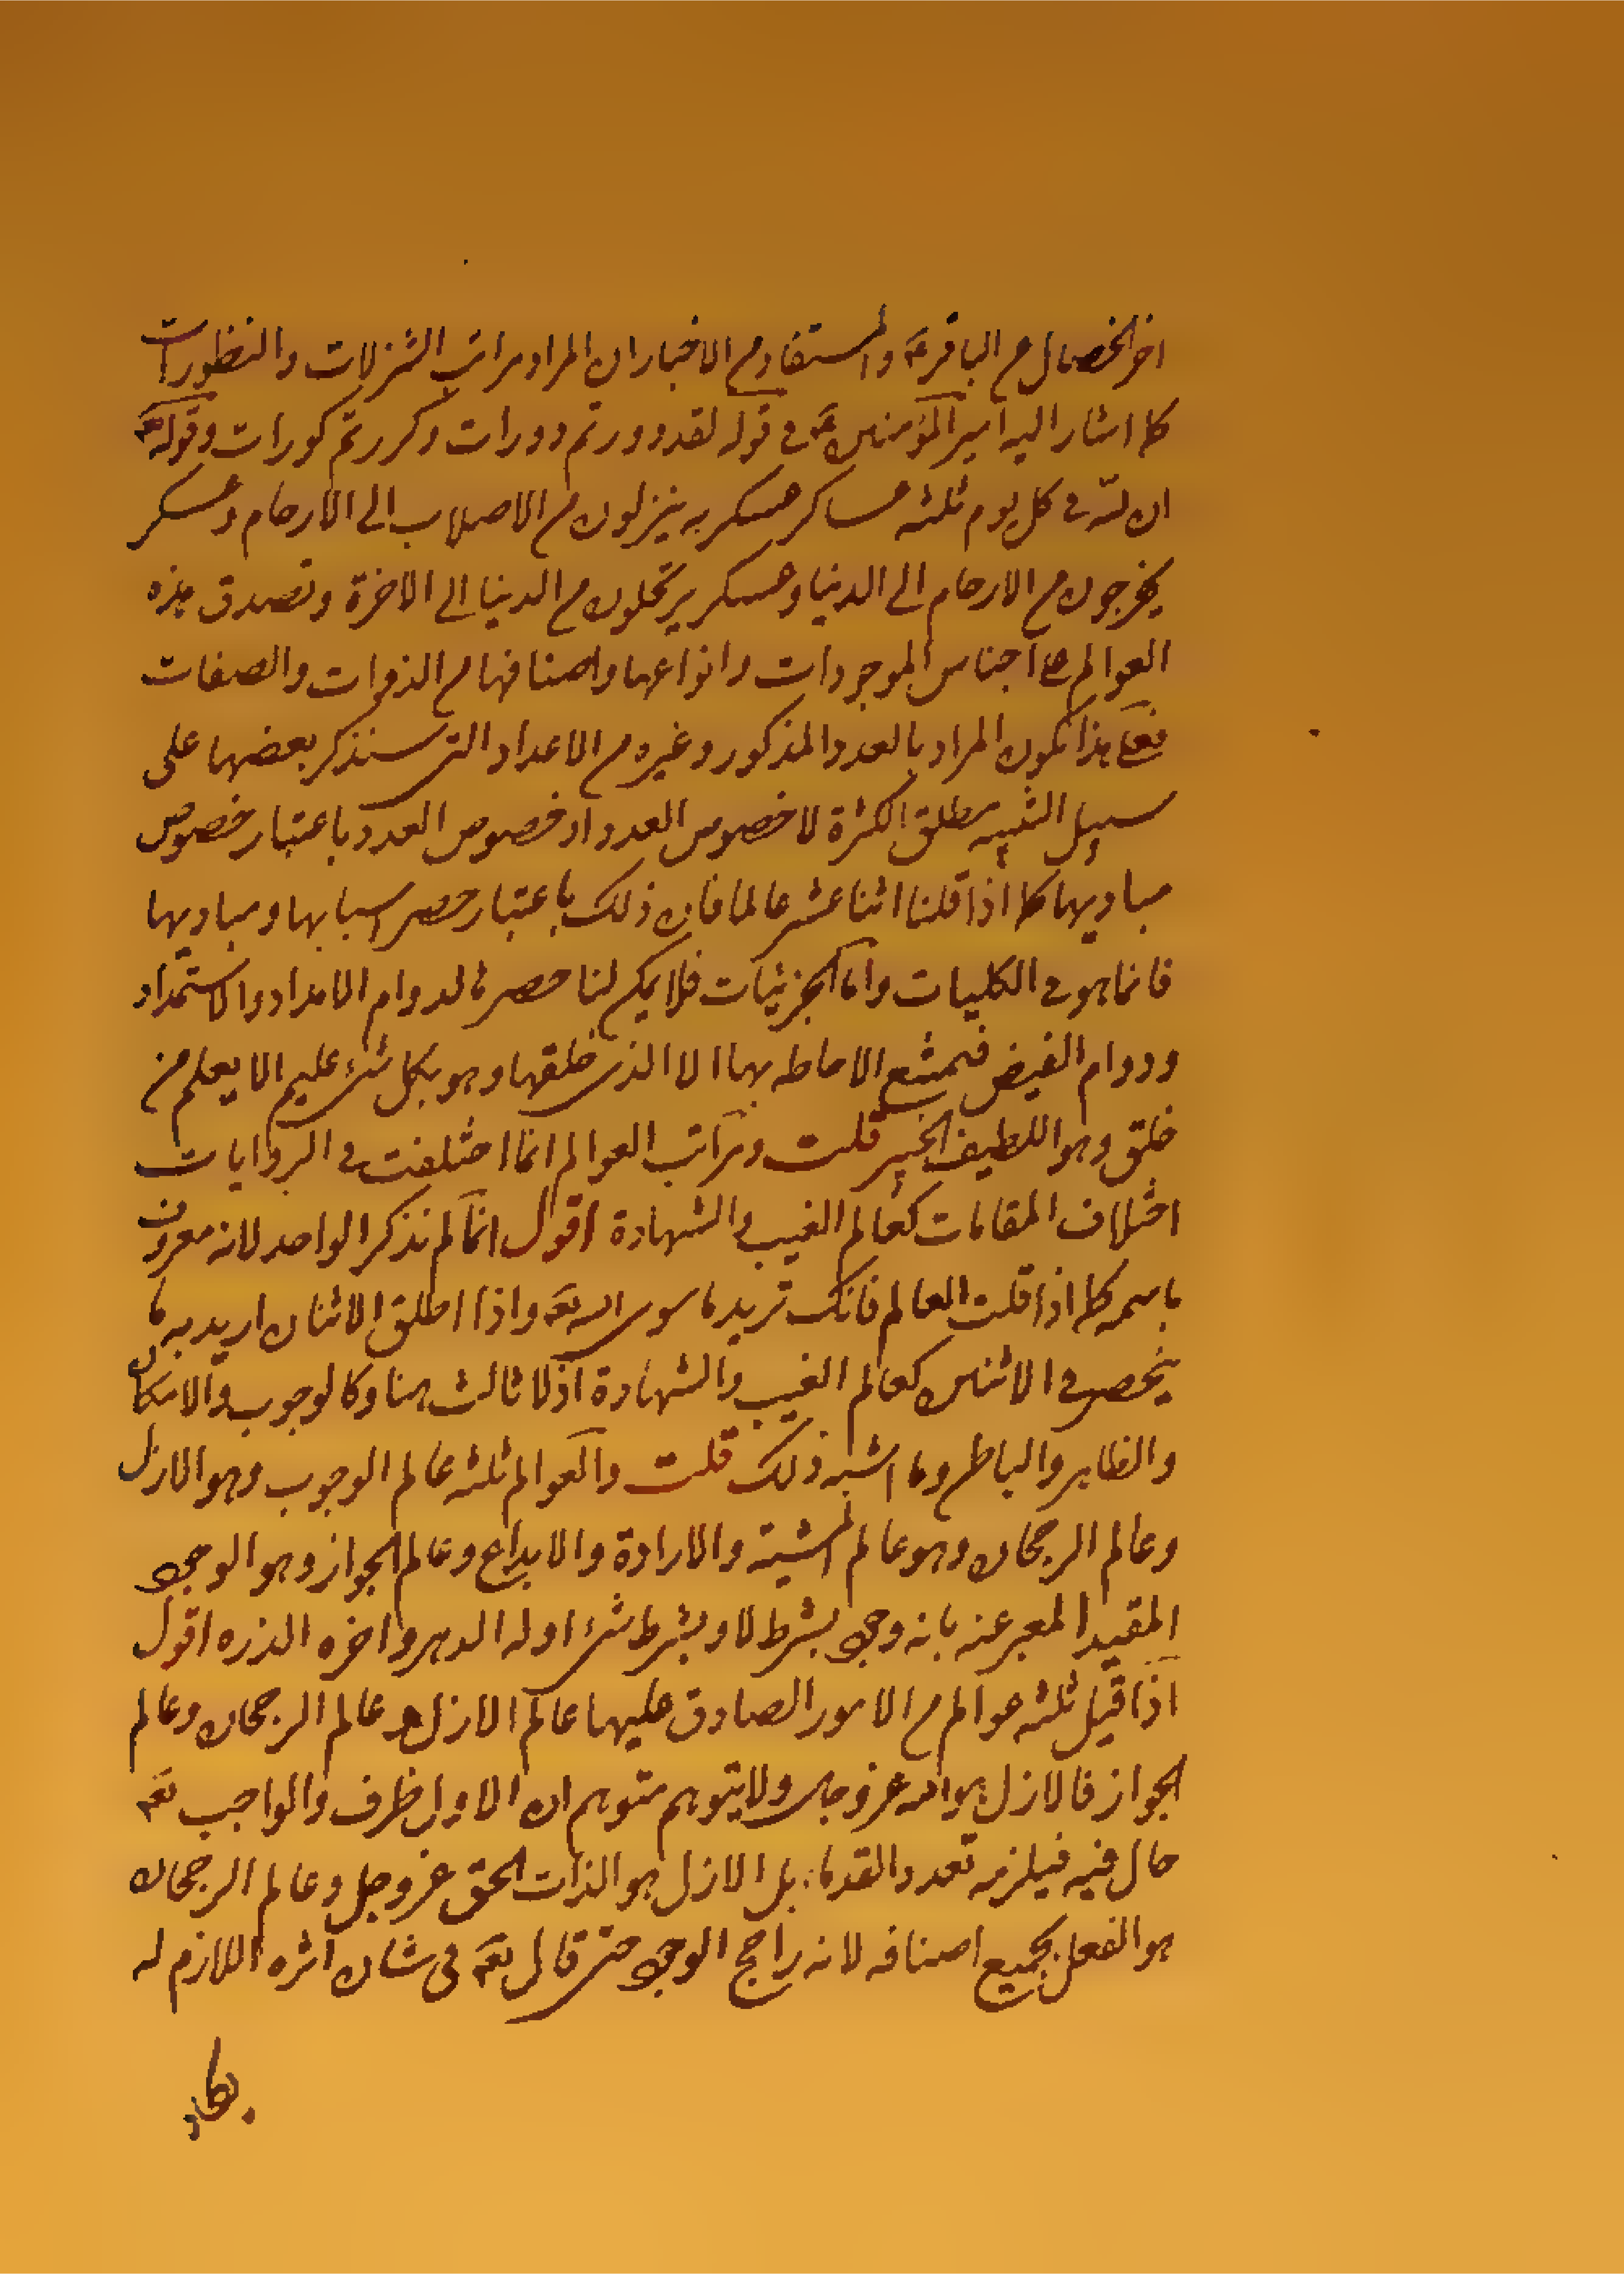 اخر الخصال عن الباقر ع والمستفاد من الاخبار ان المراد مراتب التنزلات والتطورات
كما اشار اليه امير المؤمنين ع في قوله لقد دورتم دورات وكررتم كورات وقوله ع
ان لله في كل يوم ثلثه عساكر عسكر به ينزلون من الاصلاب الى الارحام وعسكر
يخرجون من الارحام الى الدنيا وعسكر يرتحلون من الدنيا الى الاخرة وتصدق هذه
العوالم على اجناس الموجودات وانواعها واصنافها من الذوات والصفات
فعلى هذا يكون المراد بالعدد المذكور وغيره من الاعداد التي سنذكر بعضها على
سبيل التنبيه مطلق الكثرة لا خصوص العدد او خصوص العدد باعتبار خصوص
مباديها كما اذا قلنا اثنا عشر عالما فان ذلك باعتبار حصر اسبابها ومباديها
فانما هو في الكليات واما الجزئيات فلا يمكن لنا حصرها لدوام الامداد والاستمداد
ودوام الفيض فيمتنع الاحاطه بها الا الذي خلقها وهو بكل شئ عليم الا يعلم من
خلق وهو اللطيف الخبير قلت ومراتب العوالم انما اختلفت في الروايات
اختلاف المقامات كعالم الغيب والشهادة اقول انما لم نذكر الواحد لانه معروف
باسمه كما اذا قلت العالم فانك تريد ما سوى الله تعه واذا اطلق الاثنان اريد به ما
ينحصر في الاثنين كعالم الغيب والشهادة اذ لا ثالث هنا وكالوجوب والامكان
والظاهر والباطن وما اشبه ذلك قلت والعوالم ثلثه عالم الوجوب وهو الازل
وعالم الرجحان وهو عالم المشية والارادة والابداع وعالم الجواز وهو الوجود
المقيد المعبر عنه بانه وجود بشرط لا وبشرط شئ اوله الدهر واخره الذره اقول
اذا قيل ثلثه عوالم من الامور الصادق عليها عالم الازل وعالم الرجحان وعالم
الجواز فالازل هو الله عز وجل ولا يتوهم متوهم ان الاول ظرف والواجب تعه
حال فيه فيلزمه تعدد القدماء بل الازل هو الذات الحق عز وجل وعالم الرجحان
هو الفعل بجميع اصنافه لانه راجح الوجود حتى قال تعه في شان اثره اللازم له
يكاد